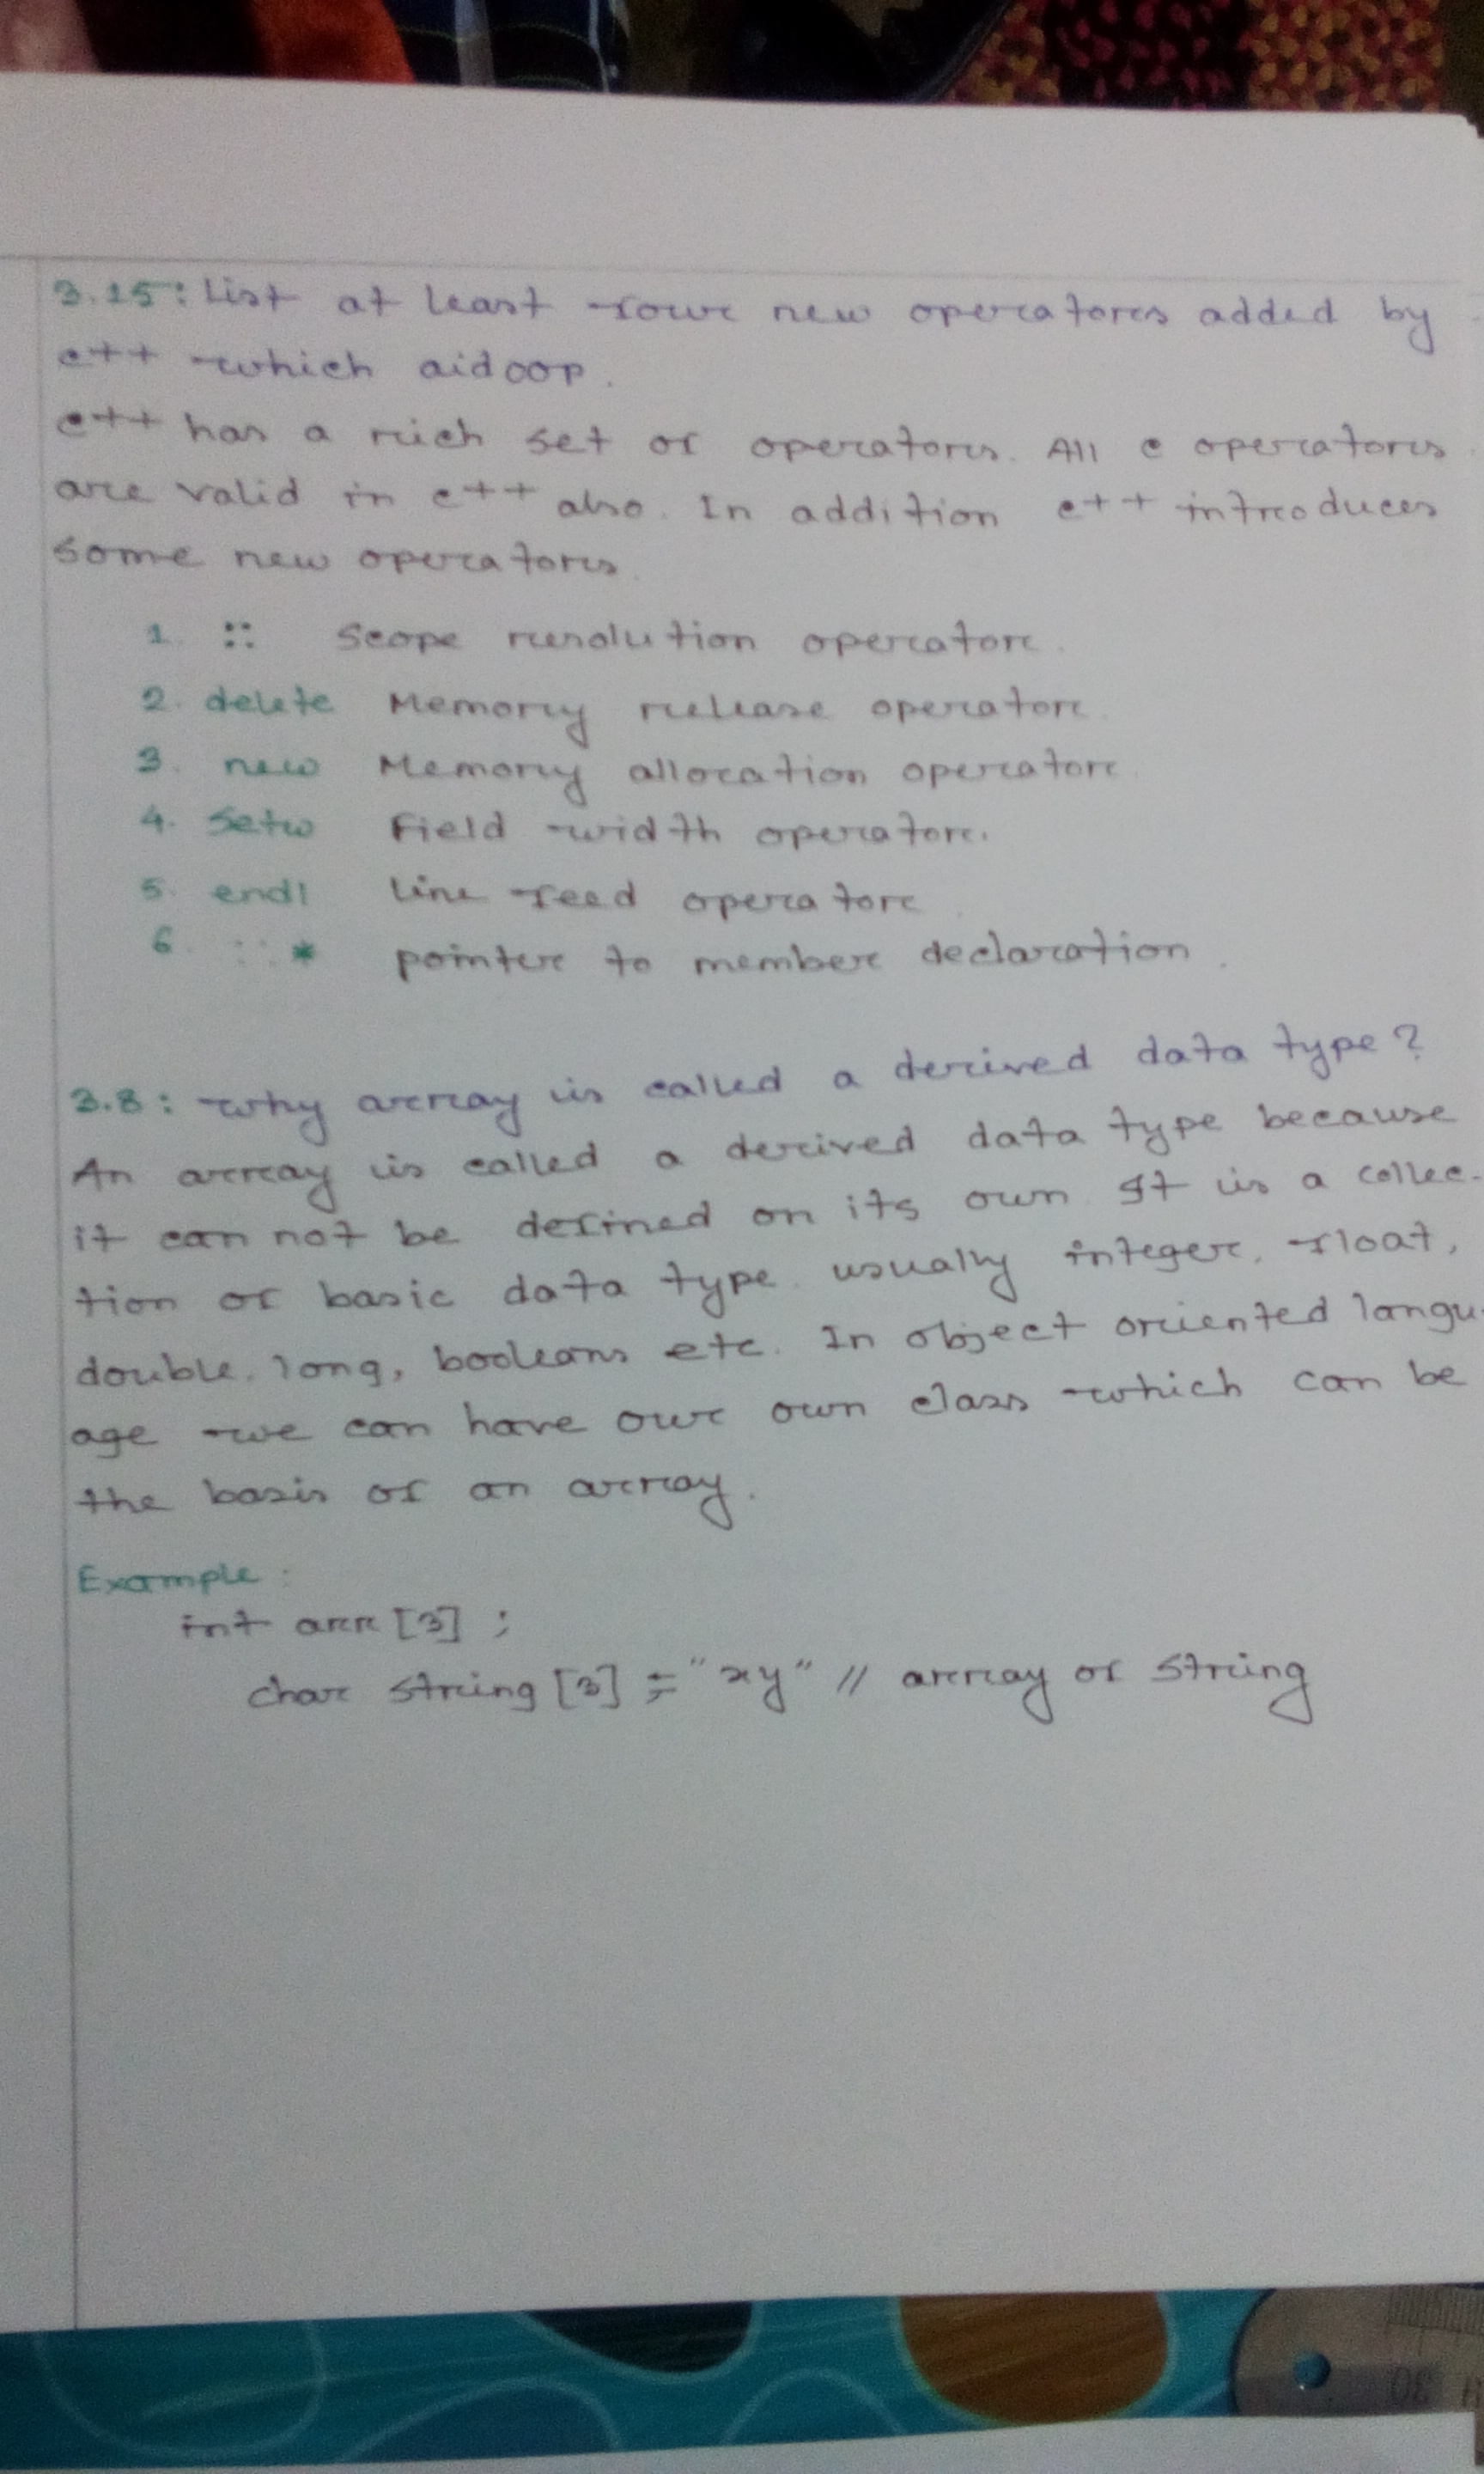 3.15: List at least four new operators added by
c++ which aid oop.
c++ has a rich set of operators. All c operators
are valid in c++ also. In addition c++ introduces
some new operators.
1. :: Scope resolution operator.
2. delete Memory release operator.
3. new Memory allocation operator.
4. setw Field width operator.
5. endl Line feed operator.
6. ::* pointer to member declaration.
3.8: why array is called a derived data type?
An array is called a derived data type because
it can not be defined on its own. It is a collec-
tion of basic data type usually integer, float,
double, long, booleans etc. In object oriented langu-
age we can have our own class which can be
the basis of an array.
Example:
int arr [3] ;
char string [3] = "xy" // array of string
30